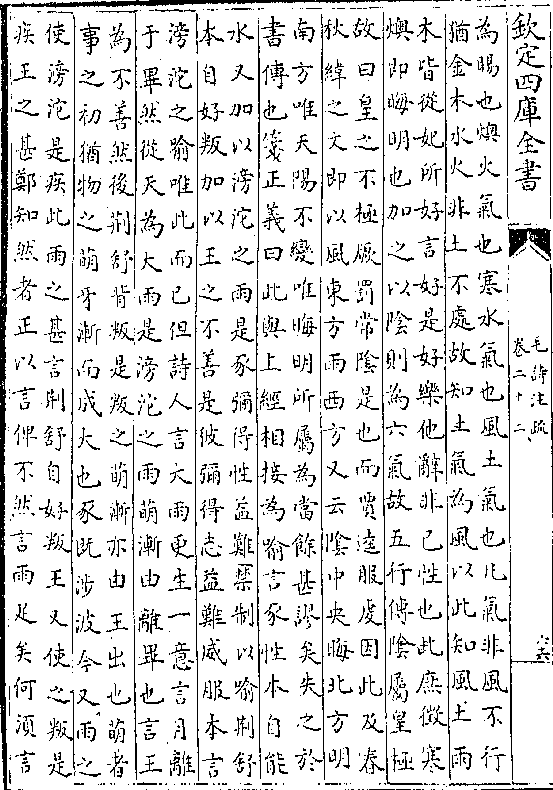 欽定四庫全書
毛詩注疏
卷二十二
為暘也燠火氣也寒水氣也風土氣也凡氣非風不行
猶金木水火非土不處故知土氣為風以此知風土雨
木皆從妃所好言好是好樂他辭非己性也此庶徵寒
燠即晦明也加之以陰則為六氣故五行傳陰屬皇極
故曰皇之不極厥罰常陰是也而賈逵服虔因此及春
秋緯之文即以風東方雨西方又云陰中央晦北方明
南方唯天陽不變唯晦明所屬為當餘甚謬矣失之於
書傳也箋正義曰此與上經相接為喻言豕性本自能
水又加以滂沱之雨是豕彌得性益難禁制以喻荆舒
本自好叛加以王之不善是彼彌得志益難威服本言
滂沱之喻唯此而已但詩人言大雨更生一意言月離
于畢然從天為大雨是滂沱之雨萌漸由離畢也言王
為不善然後荆舒背叛是叛之萌漸亦由王出也萌者
事之初猶物之萌牙漸而成大也豕既涉波今又雨之
使滂沱是疾此雨之甚言荆舒自好叛王又使之叛是
疾王之甚鄭知然者正以言俾不然言雨足矣何須言